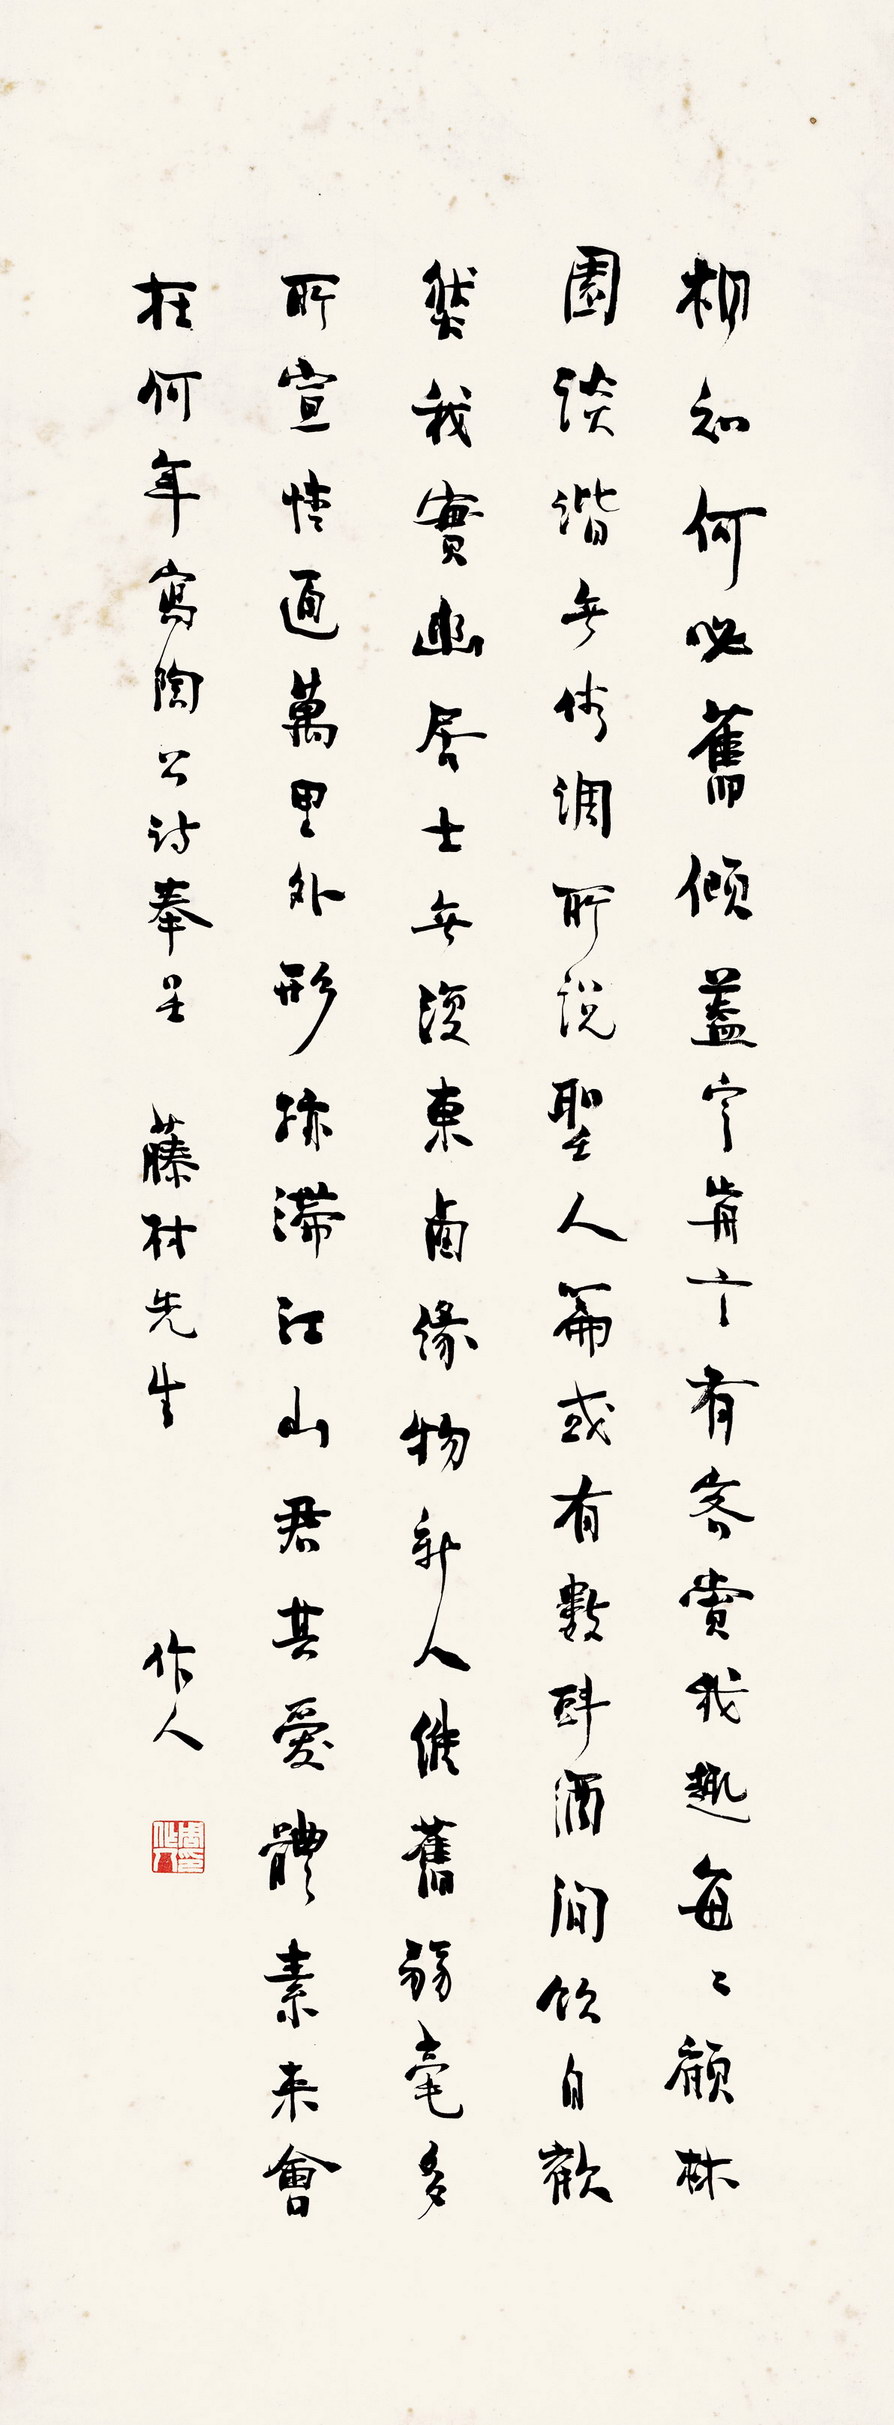 相知何必舊傾蓋定前言有客賞我趣每〻顧林
園談諧無俗調所說聖人篇或有數㪷酒間飲自歡
然我實幽居士無復東卥緣物新人惟舊弱毫多
所宣情通萬里外形跡滯江山君其愛體素来會
在何年寫陶公詩奉呈 藤村先生 作人
周作人印